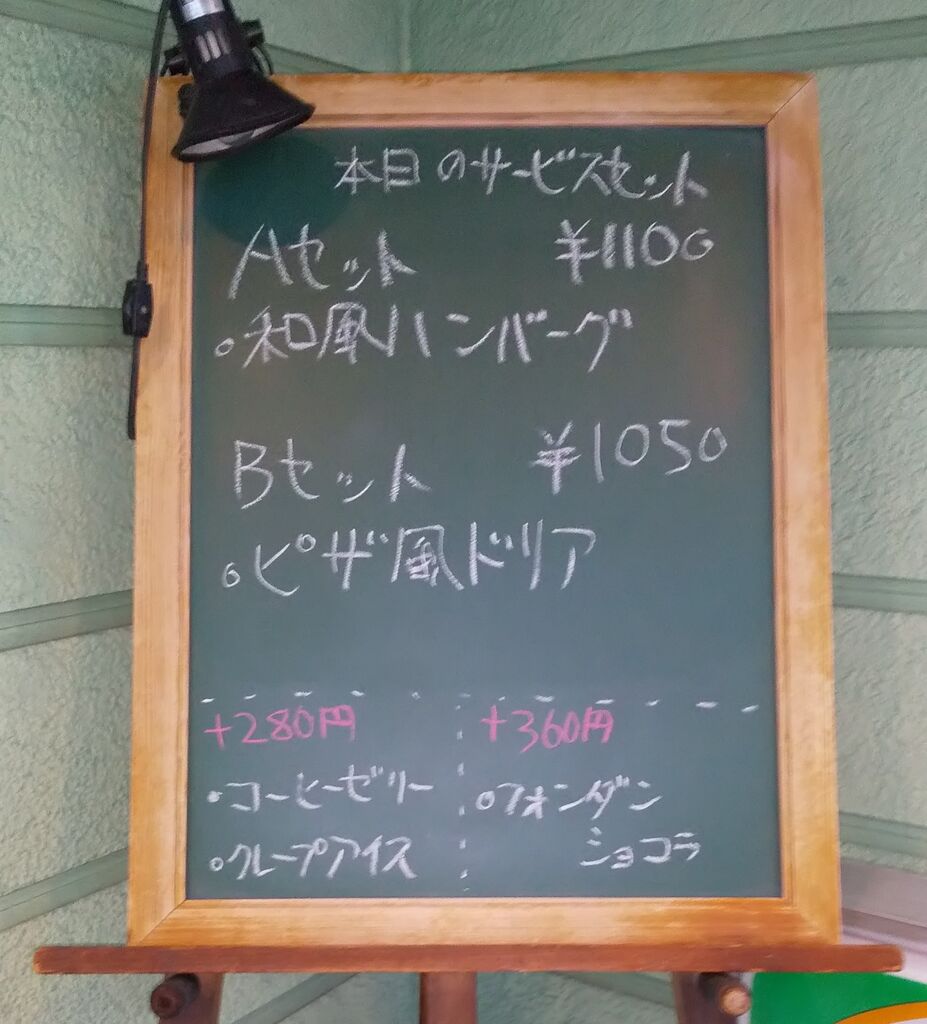 本日のサービスセット
Aセット ¥1100
○和風ハンバーグ
Bセット ¥1050
○ピザ風ドリア
+280円 +360円
○コーヒーゼリー ○フォンダン
○クレープアイス ショコラ